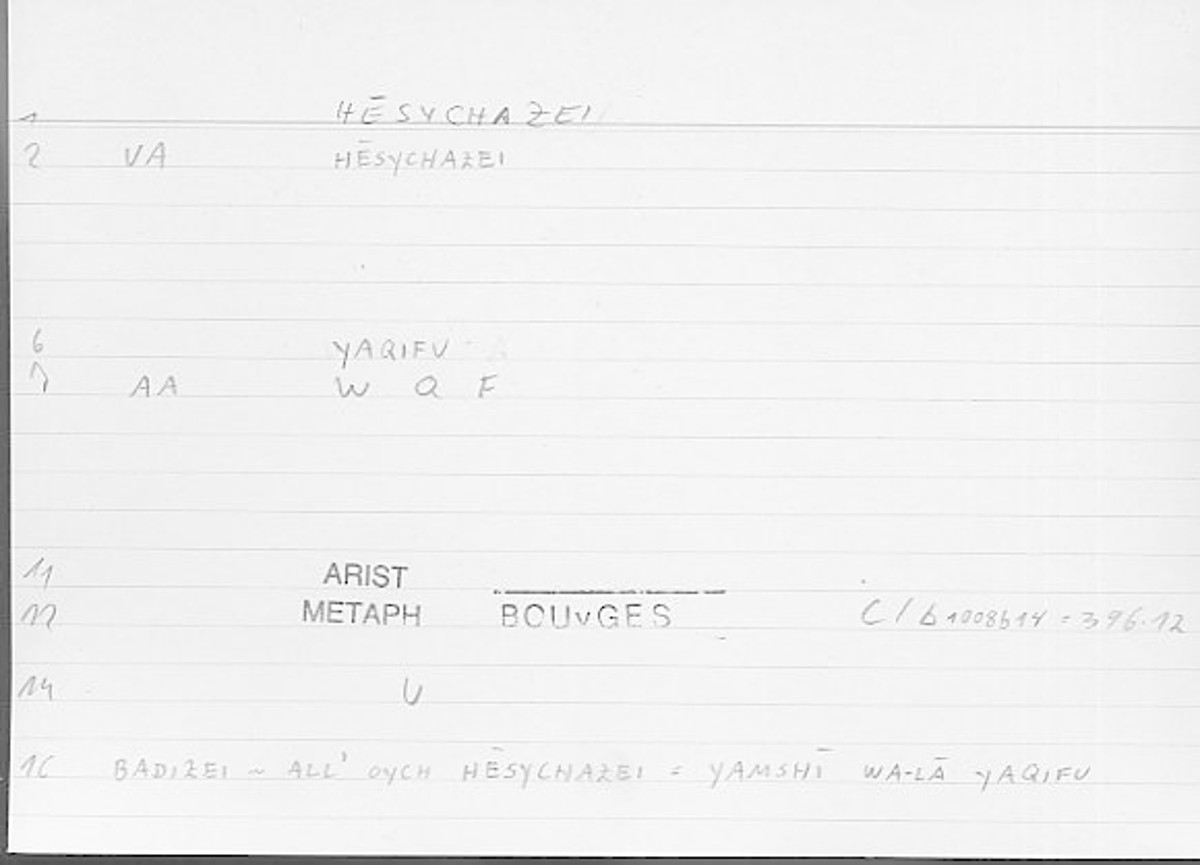 1 HĒSYCHAZEI
2 VA HĒSYCHAZEI
6 YAQIFU
7 AA W Q F
11 ARIST
12 METAPH BOUvGES C/b 1008b14 = 396.12
14 V
16 BADIZEI ~ ALL' OYCH HĒSYCHAZEI = YAMSHĪ WA-LĀ YAQIFU